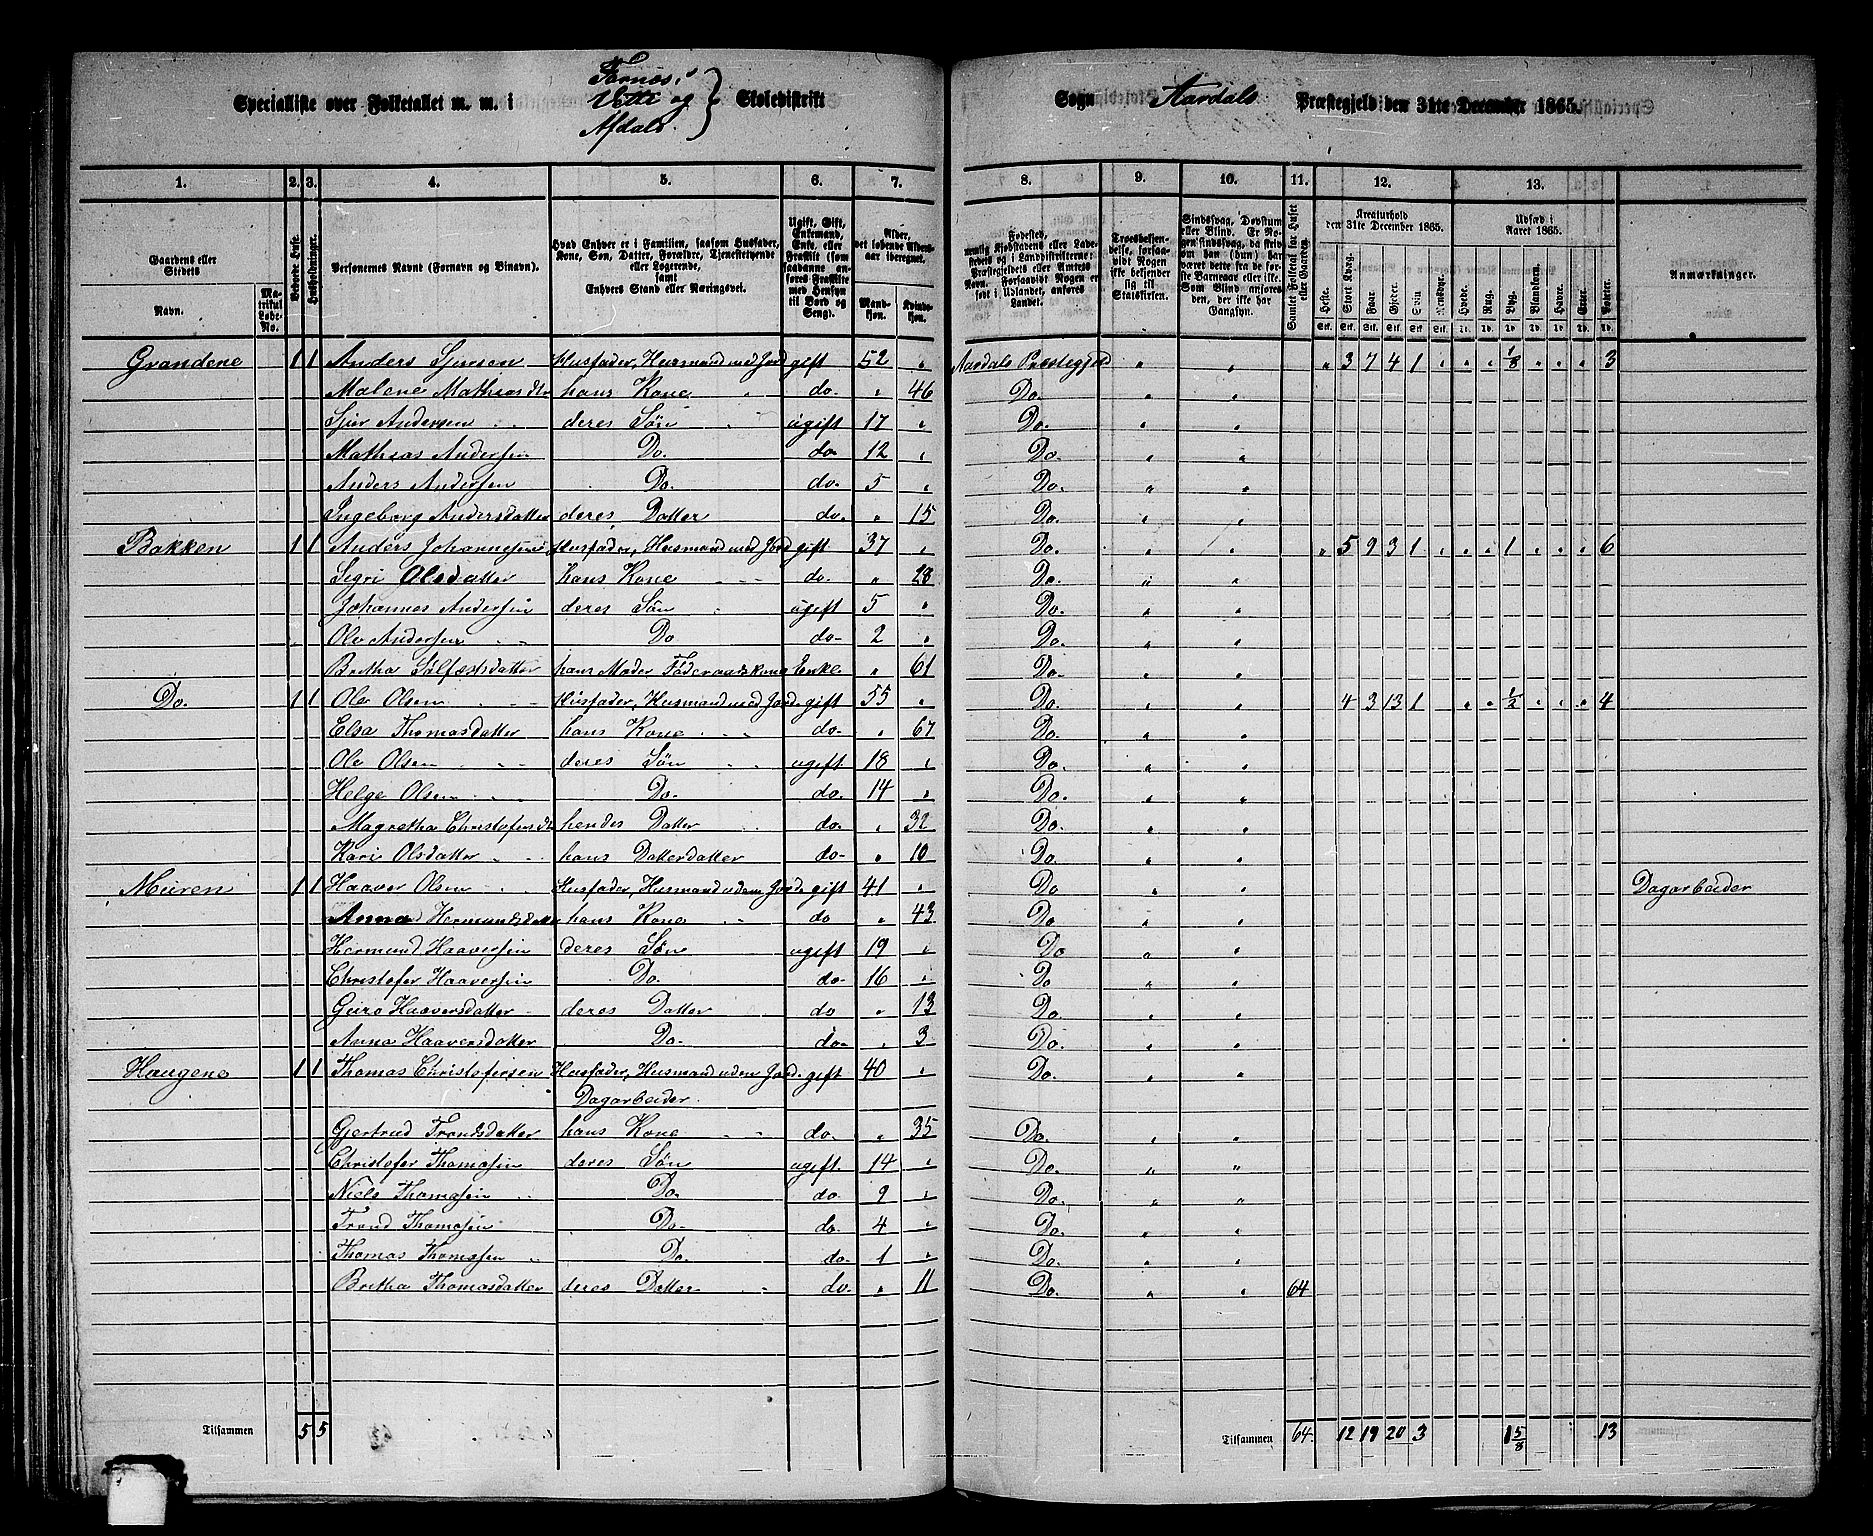 Specialliste over Folketallet m. m. i Farnæs, Vetti og Afdals Skoledistrikt Sogn Aardals Præstegjeld den 31te December 1865.
1. 2. 3. 4. 5. 6. 7. 8. 9. 10. 11. 12. 13.
Gaardens eller Stedets Navn. Matrikul Løbe-No. Beboede Huse. Husholdninger. Personernes Navne (Fornavn og Binavn). Hvad Enhver er i Familien, saasom Husfader, Kone, Søn, Datter, Forældre, Tjenestetyende eller Logerende, samt Enhvers Stand eller Næringsvei. Ugift, Gift, Enkemand, Enke, eller Fraskilt (saasom saadanne anføres Fraskilte med Hensyn til Bord og Seng). Alder, det løbende Alders-aar iberegnet. Mandkøn. Kvindekøn.
Anmærkninger.
Kreaturhold den 31te December 1865. Udsæd i Aaret 1865.
Heste. Stort Kvæg. Faar. Gjeder. Svin. Rensdyr. Hvede. Rug. Byg. Blandkorn. Havre. Erter. Poteter.
Grandene 1 1 Anders Sjursen Husfader, Husmand med Jord gift 52 " Aardals Præstegjeld " " " 3 7 4 1 " " " 1/8 " " " 3
Malene Mathiasdtr hans Kone do. " 46 Do. " "
Sjur Andersen deres Søn ugift 17 " Do. " "
Mathias Andersen Do. do. 12 " Do. " "
Anders Andersen Do. do. 5 " Do. " "
Ingeborg Andersdatter deres Datter do. " 15 Do. " "
Bakken 1 1 Anders Johannesen Husfader, Husmand med Jord gift 37 " Do. " " " 5 9 3 1 " " " 1 " " " 6
Sigri Olsdatter hans Kone do. " 28 Do. " "
Johannes Andersen deres Søn ugift 5 " Do. " "
Ole Andersen Do do- 2 " Do. " "
Britha Sølfæstsdatter hans Moder Føderaadskone Enke " 61 Do. " "
Do. 1 1 Ole Olsen Husfader, Husmand med Jord gift 55 " Do " " 4 3 13 1 " " 1/2 " " " 4
Elsa Thomasdatter hans Kone do. " 67 Do. " "
Ole Olsen deres Søn ugift 18 " Do. " "
Helge Olsen Do. do. 14 " Do. " "
Magretha Christofersdtr hendes Datter do. " 32 Do. " "
Kari Olsdatter hans Datterdatter do- " 10 Do. " "
Muren 1 1 Haaver Olsen Husfader, Husmand uden Jord gift 41 " Do " " Dagarbeider
Anna Hermundsdatter hans Kone do " 43 Do " "
Hermund Haaversen deres Søn ugift 19 " Do " "
Christofer Haaversen Do. do- 16 " Do " "
Guro Haaversdatter deres Datter do " 13 Do. " "
Anna Haaversdatter Do. do- " 3 Do. " "
Haugene 1 1 Thomas Christofersen Husfader, Husmand uden Jord gift 40 " Do. " "
Dagarbeider
Gjertrud Trondsdatter hans Kone do. " 35 Do. " "
Christofer Thomasen deres Søn ugift. 14 " Do. " "
Niels Thomasen Do. do. 9 " Do. " "
Trond Thomasen Do- do. 4 " Do. " "
Thomas Thomasen Do. do. 1 " Do. " "
Britha Thomasdatter deres Datter do. " 11 Do. " " 64
Tilsammen 5 5 Tilsammen 64. 12 19 20 3 1 5/8 13